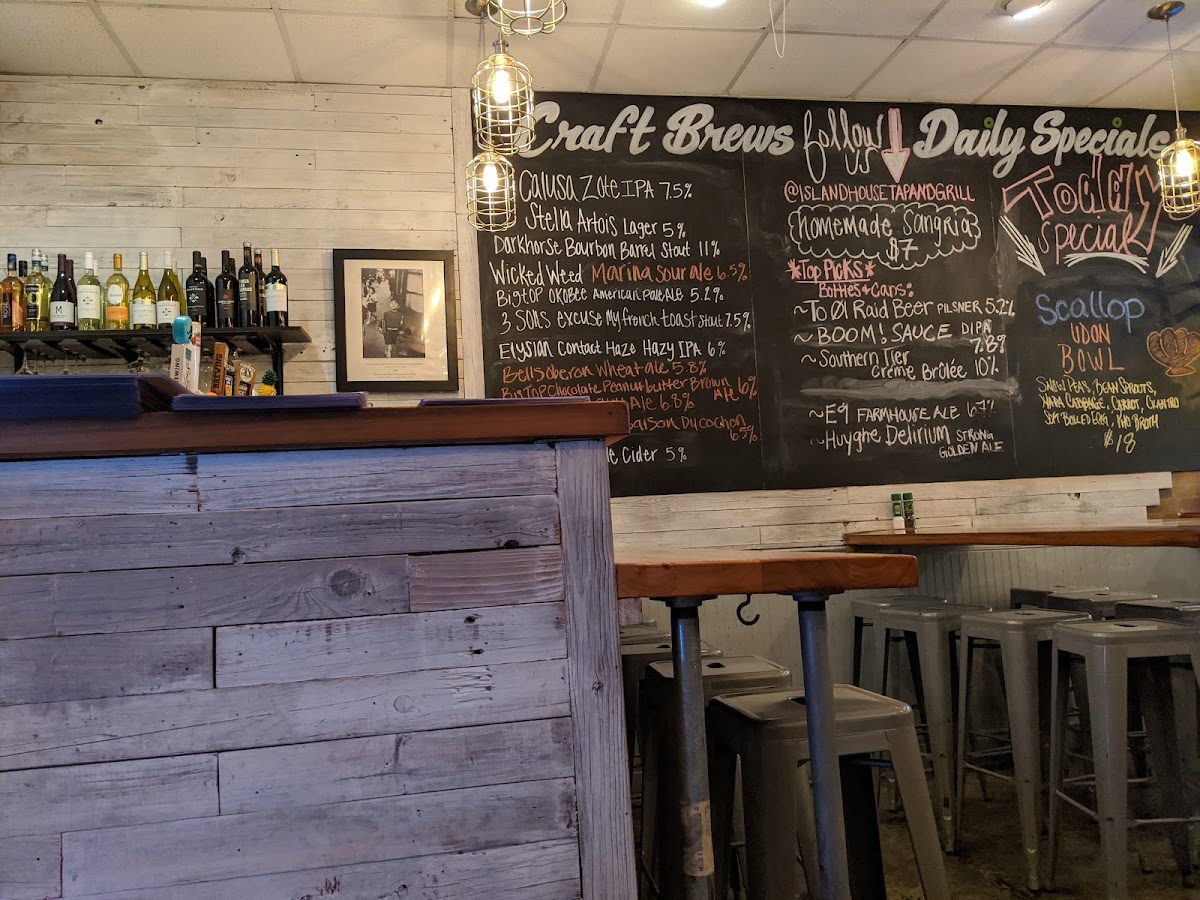 Craft Brews
Calusa Zote IPA 7.5%
Stella Artois Lager 5%
Darkhorse Bourbon Barrel Stout 11%
Wicked Weed Marina Sour Ale 6.5%
Bigtop Okobee American Pale Ale 5.2%
3 Sons excuse my french toast stout 7.5%
Elysian Contact Haze Hazy IPA 6%
Bells oberon Wheat ale 5.8%
Big Top Chocolate Peanut butter Brown Ale 6%
Ale 6.8%
Saison Du cochon
6.5%
Cider 5%
follow us
@ISLANDHOUSETAPANDGRILL
Homemade Sangrias
$7
*Top Picks*
Bottles & Cans:
~To Øl Raid Beer PILSNER 5.2%
~BOOM! SAUCE DIPA
7.8%
~Southern Tier
Crème Brûlée 10%
~E9 FARMHOUSE ALE 6.7%
~Huyghe Delirium STRONG
GOLDEN ALE
Daily Specials
Today
Special
Scallop
UDON
BOWL
Snow Peas, Bean Sprouts,
Napa Cabbage, Carrot, Cilantro
Soft Boiled Egg, Broth
$18
M